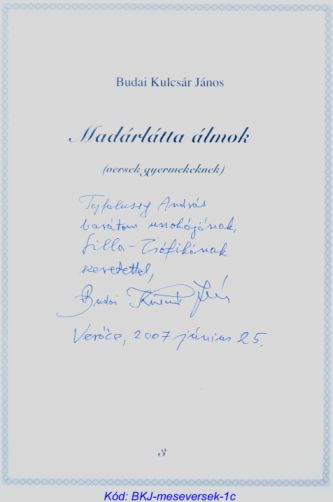 Budai Kulcsár János
Madárlátta álmok
(versek gyermekeknek)
András
barátom unokájának,
Lilla-Zsófikának
szeretettel,
Budai
Verőce, 2007 június 25.
3
Kód: BKJ-meseversek-1c